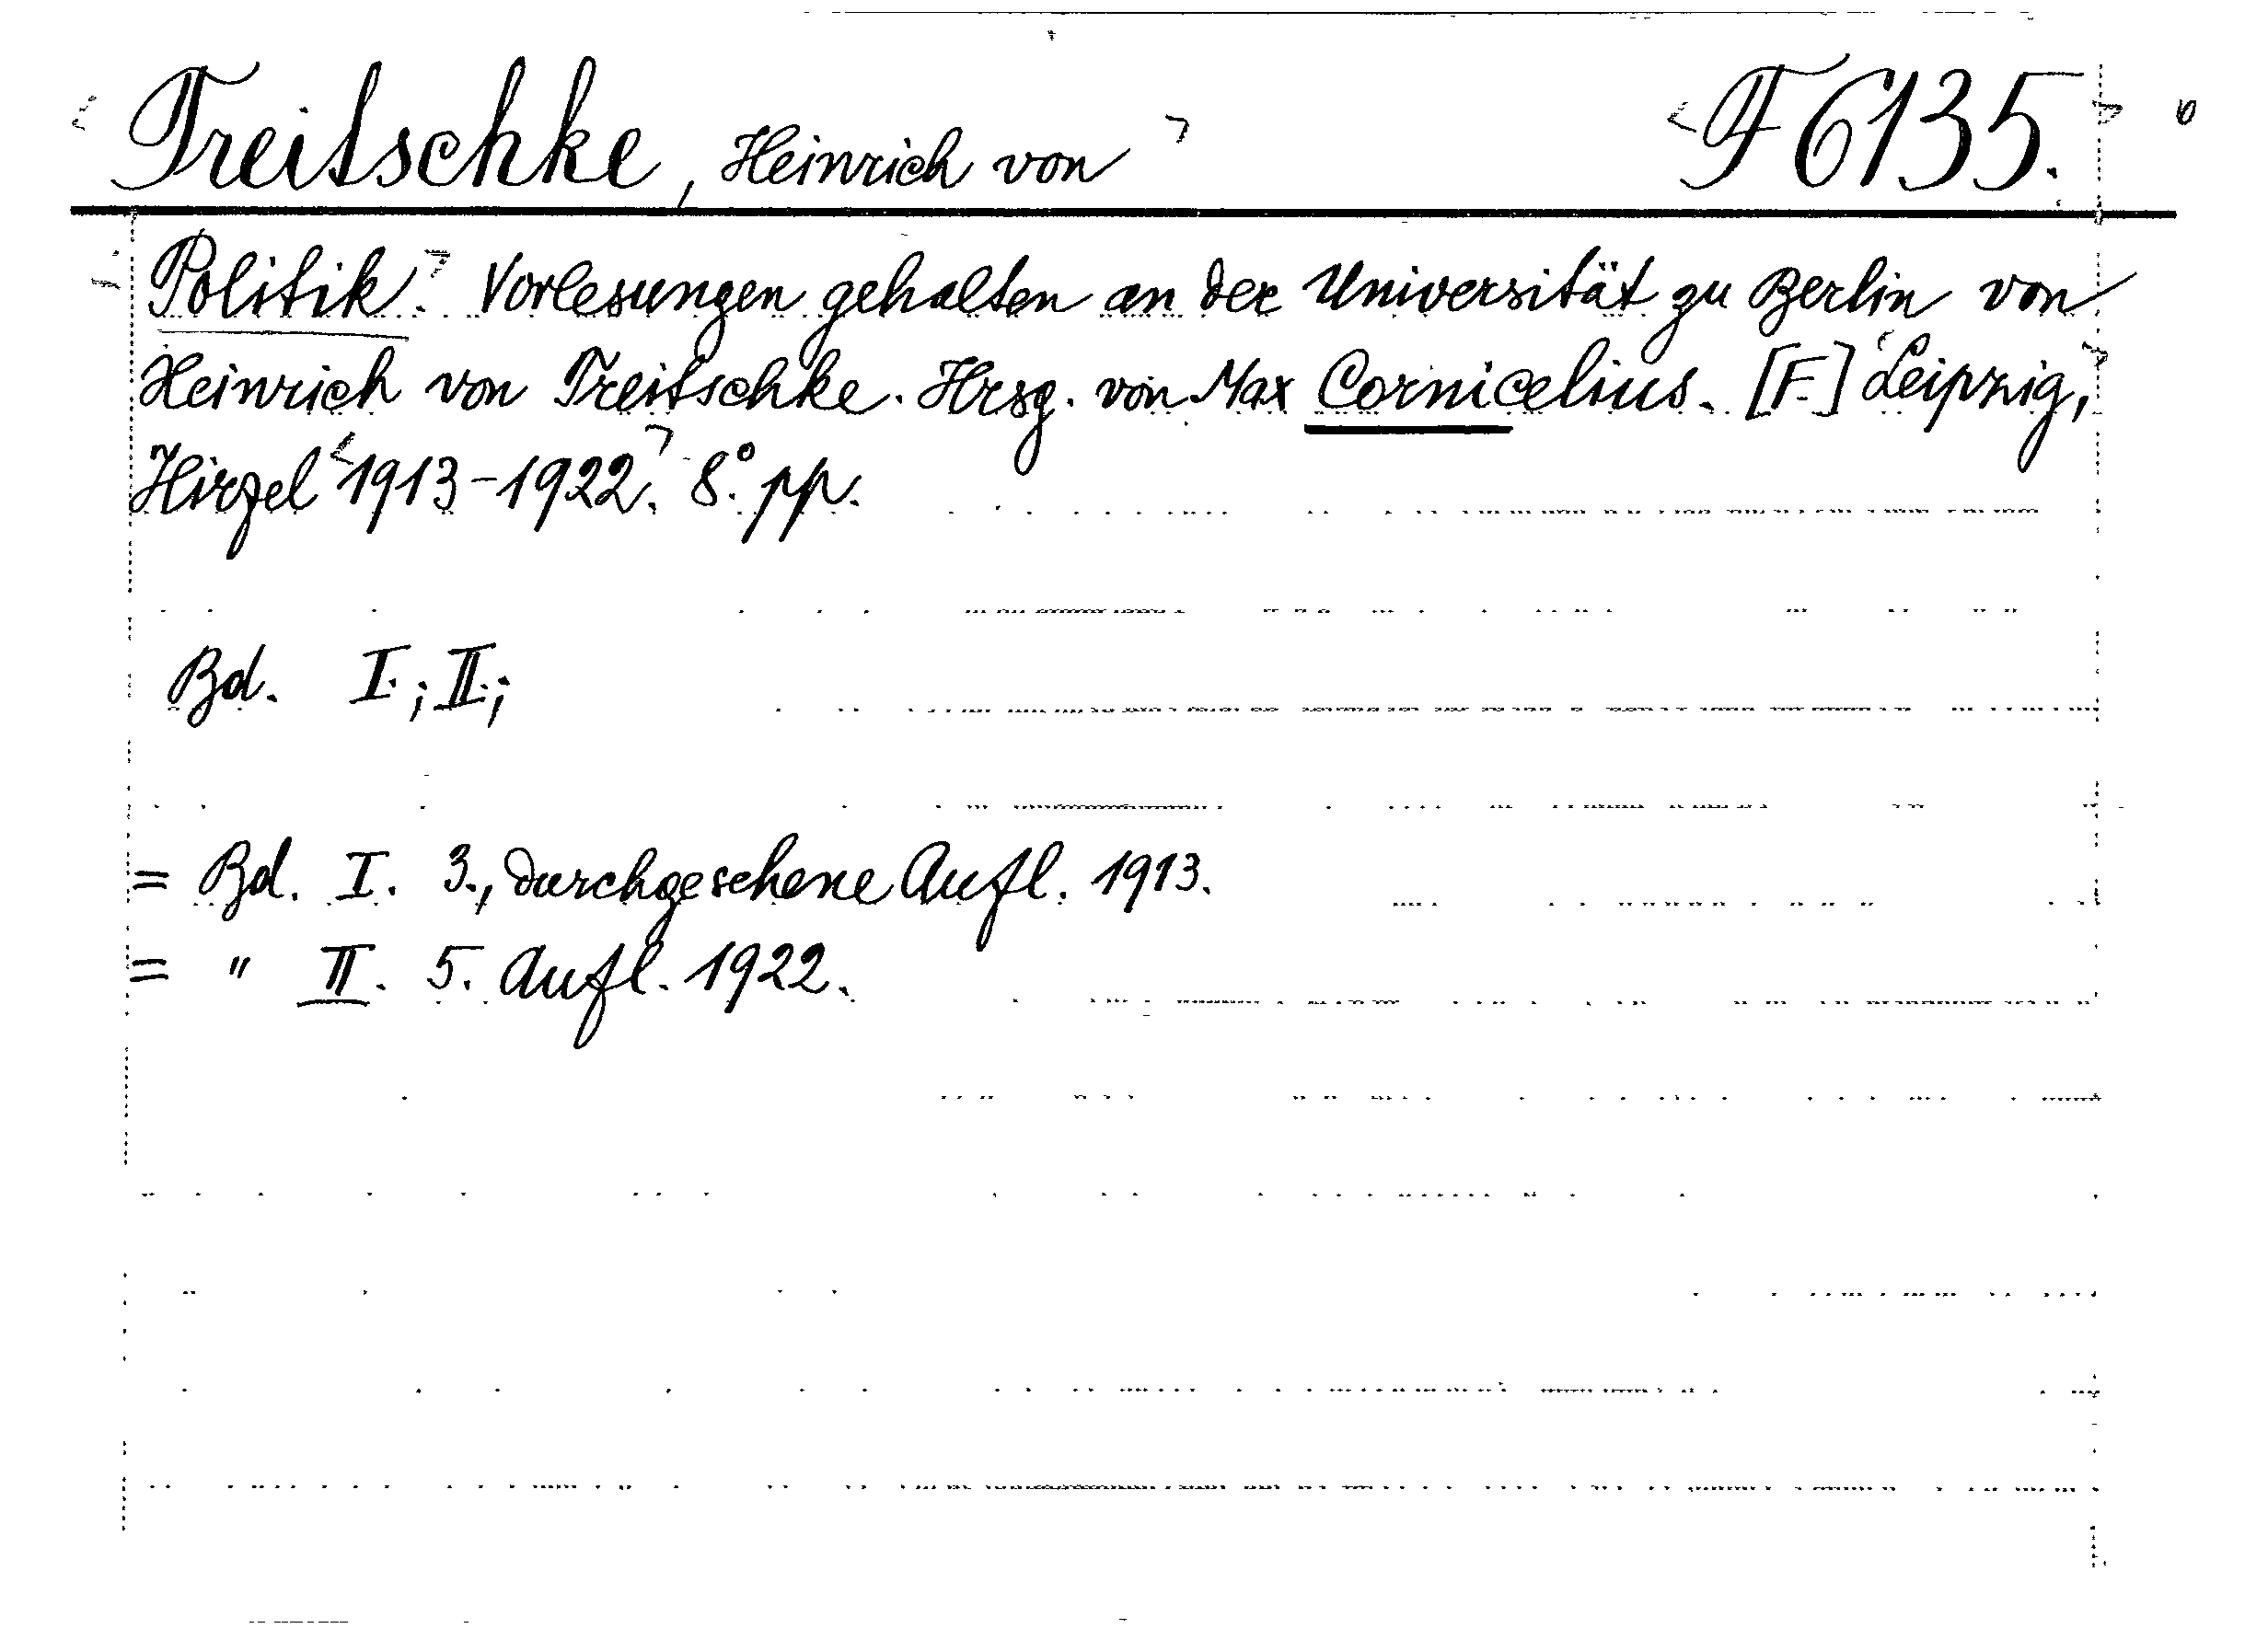 Treitschke, Heinrich von F 6135.
Politik. Vorlesungen gehalten an der Universität zu Berlin von
Heinrich von Treitschke. Hrsg. von Max Cornicelius. [F] Leipzig,
Hirzel 1913-1922. 8°. pp.
Bd. I.; II.;
= Bd. I. 3., durchgesehene Aufl. 1913.
= " II. 5. Aufl. 1922.